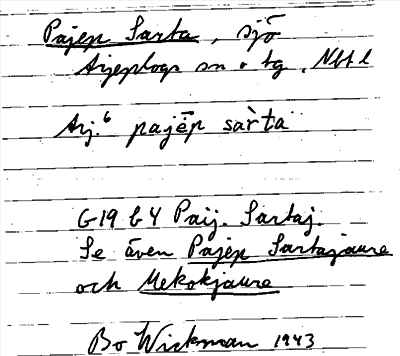 Pajep Sarta, sjö
Arjeplogs sn o tg, Nbtl
Arj.6 pajēp sàrta
G19 b4 Paij. Sartaj.
Se även Pajep Sartajaure
och Mekokjaure
Bo Wickman 1943